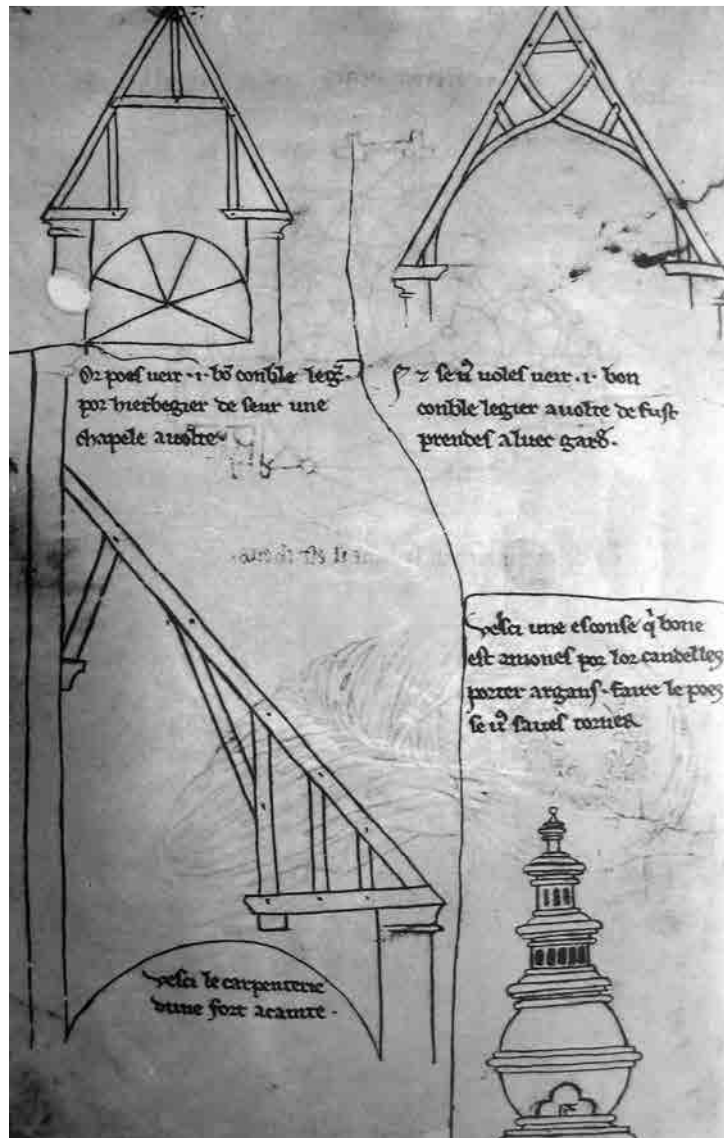 Or poes ueir .i. bõ conble legĩ.
por hierbegier de seur une
chapele a uolte.
⁊ se uͦ uoles ueir .i. bon
conble legier a uolte de fust
prendes aluec gard̃.
vesci une esconse q̃ bone
est a mones por lor candelles
porter argans. faire le poes
se uͦ saues torner.
vesci le carpenterie
dune fort acainte.